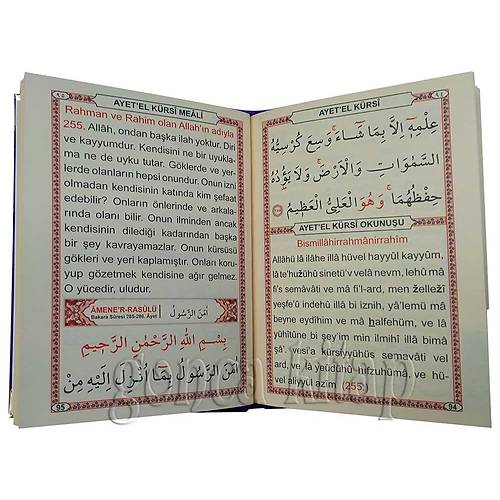 ٩٤
AYET'EL KÜRSİ
عِلْمِهٖٓ اِلَّا بِمَا شَٓاءَۚ وَسِعَ كُرْسِيُّهُ
السَّمٰوَاتِ وَالْاَرْضَۚ وَلَا يَؤُ۫دُهُ
حِفْظُهُمَاۚ وَهُوَ الْعَلِيُّ الْعَظٖيمُ
AYET'EL KÜRSİ OKUNUŞU
Bismillâhirrahmânirrahîm
Allâhü lâ ilâhe illâ hüvel hayyül kayyûm,
lâ te'huzühû sinetü'v velâ nevm, lehû mâ
fi's semâvâti ve mâ fi'l-ard, men żellezî
yeşfe'û indehû illâ bi iznih, yâ'lemü mâ
beyne eydîhim ve mâ halfehüm, ve lâ
yühîtûne bi şey'in min ilmihî illâ bimâ
şâ', vesi'a kürsiyyühüs semavâti vel
ard, ve lâ yeûdühû hıfzuhümâ, ve hü-
vel aliyyül azîm (255)
94
٩٥
AYET'EL KÜRSİ MEÂLİ
Rahman ve Rahim olan Allah'ın adıyla
255. Allâh, ondan başka ilah yoktur. Diri
ve kayyumdur. Kendisini ne bir uyukla-
ma ne de uyku tutar. Göklerde ve yer-
lerde olanların hepsi onundur. Onun izni
olmadan kendisinin katında kim şefaat
edebilir? Onların önlerinde ve arkala-
rında olanı bilir. Onun ilminden ancak
kendisinin dilediği kadarından başka
bir şey kavrayamazlar. Onun kürsüsü
gökleri ve yeri kaplamıştır. Onları koru-
yup gözetmek kendisine ağır gelmez.
O yücedir, uludur.
ÂMENE'R-RASÛLÜ
Bakara Sûresi 285-286. Âyet
اٰمَنَ الرَّسُولُ
بِسْمِ اللّٰهِ الرَّحْمٰنِ الرَّحٖيمِ
اٰمَنَ الرَّسُولُ بِمَٓا اُنْزِلَ اِلَيْهِ مِنْ
95
genca kitap